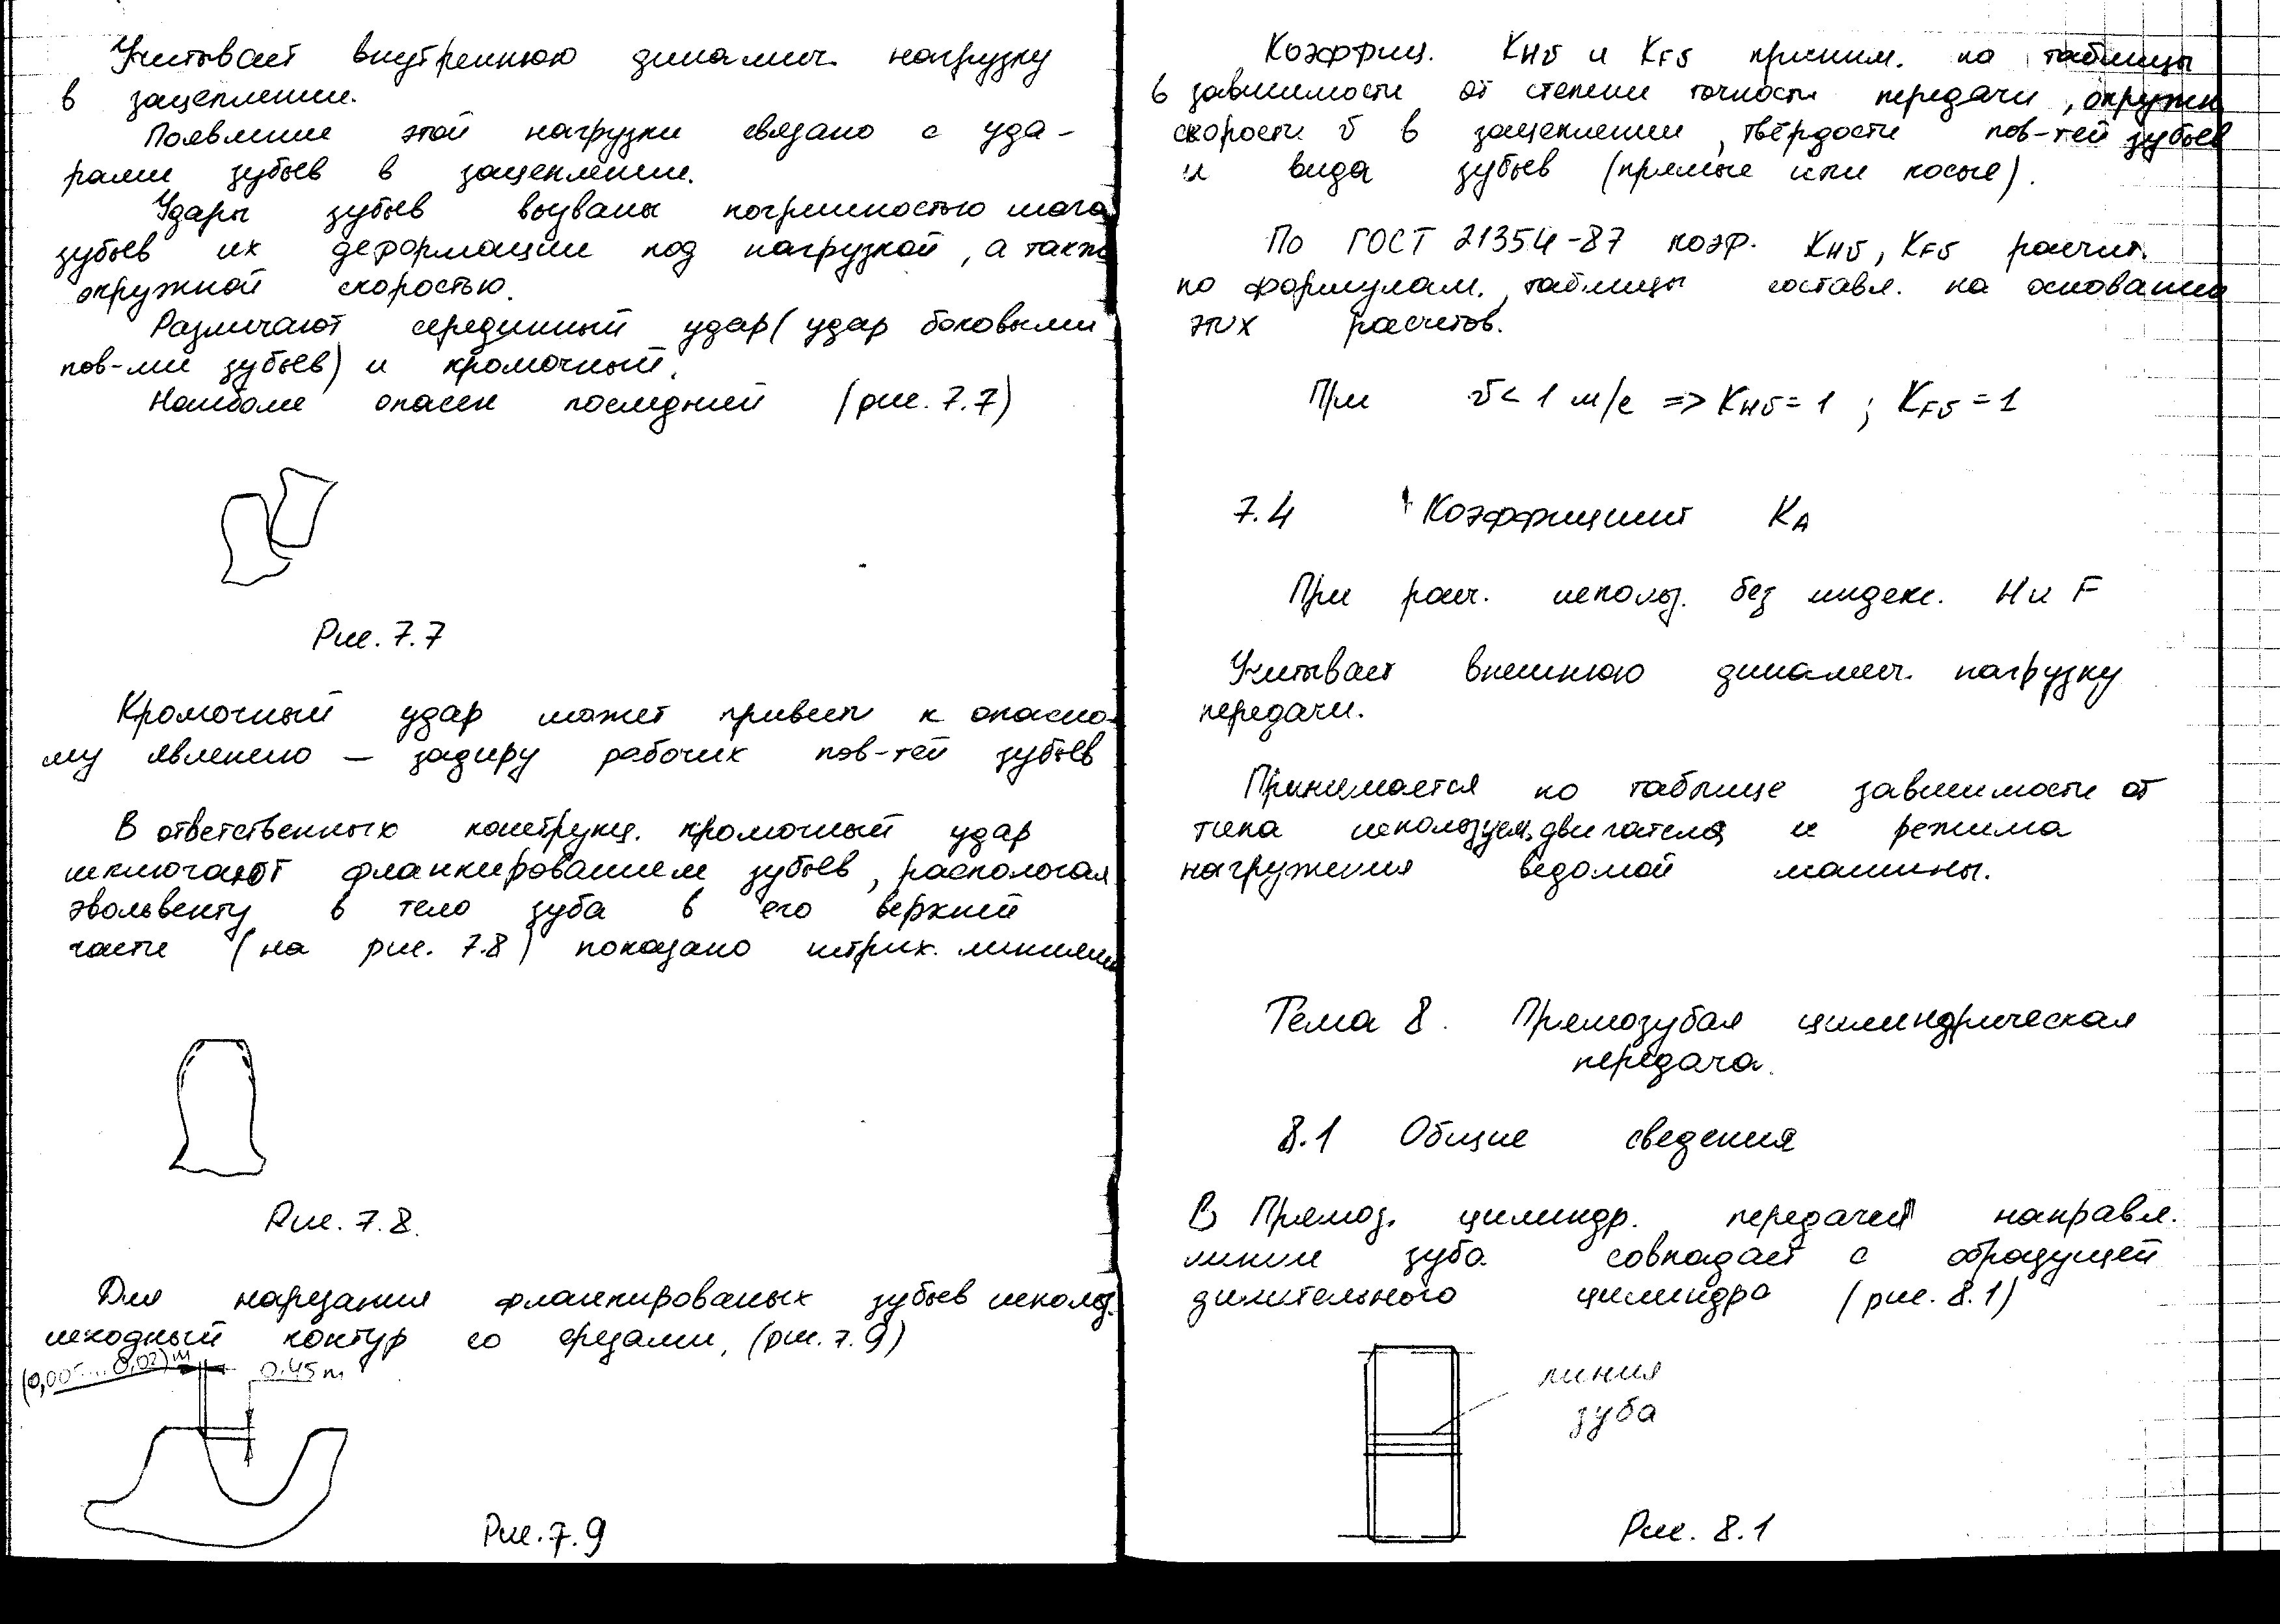 Учитывает внутреннюю динамич. нагрузку
в зацеплении.
Появление этой нагрузки связано с уда-
рами зубьев в зацеплении.
Удары зубьев вызваны погрешностью шага
зубьев их деформации под нагрузкой, а также
окружной скоростью.
Различают серединный удар (удар боковыми
пов-ми зубьев) и кромочный.
Наиболе опасен последний (рис. 7.7)
Рис. 7.7
Кромочный удар может привести к опасно-
му явлению — задиру рабочих пов-тей зубьев
В ответственных конструкц. кромочный удар
исключают фланкированием зубьев, распологая
эвольвенту в тело зуба в его верхней
части (на рис. 7.8) показано штрих. линиями
Рис. 7.8.
Для нарезания фланкированых зубьев использ.
исходный контур со срезами, (рис. 7.9)
(0,005...0,02)m
0.45m
Рис. 7.9
Коэффиц. KHυ и KFυ приним. по таблицы
в зависимости от степени точности передачи, окружн
скорости υ в зацеплении, твёрдости пов-тей зубьев
и вида зубьев (прямые или косые).
По ГОСТ 21354-87 коэф. KHυ, KFυ расчит.
по формулам, таблицы составл. на основании
этих расчетов.
При υ < 1 м/с => KHυ = 1 ; KFυ = 1
7.4 Коэффициент KA
При расч. использ. без индекс. H и F
Учитывает внешнюю динамич. нагрузку
передачи.
Принимается по таблице зависимости от
типа используем. двигателя и режима
нагружения ведомой машины.
Тема 8. Прямозубая цилиндрическая
передача.
8.1 Общие сведения
В Прямоз. цилиндр. передачей направл.
линии зуба совпадает с образущей
делительного цилиндра (рис. 8.1)
линия
зуба
Рис. 8.1